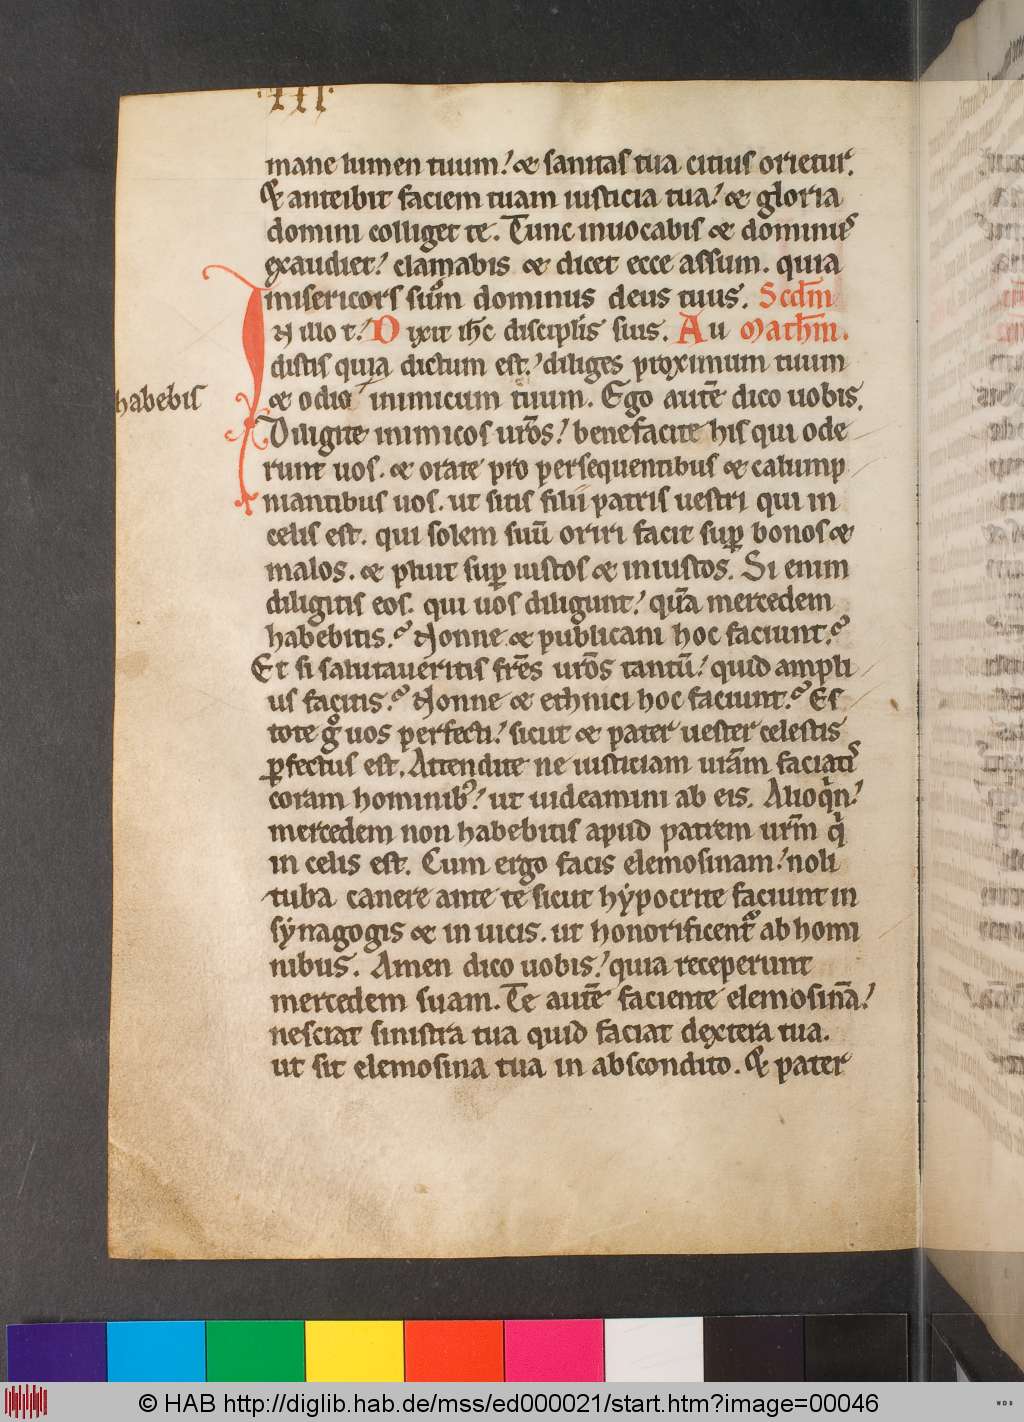 ·III·
mane lumen tuum! & sanitas tua citius orietur.
Et anteibit faciem tuam iusticia tua! & gloria
domini colliget te. Tunc inuocabis & dominus
exaudiet! clamabis & dicet ecce assum. quia
misericors sum dominus deus tuus. Scdm̄
IN illo t! Dixit ihc̄ discipłis suis. Au Mathm̄.
distis quia dictum est! diliges proximum tuum
habebis
& odio inimicum tuum. Ego autē dico uobis.
Diligite inimicos urōs! benefacite his qui ode
runt uos. & orate pro persequentibus & calump
niantibus uos. ut sitis filii patris uestri qui in
celis est. qui solem suū oriri facit sup̄ bonos &
malos. & pluit sup̄ iustos & iniustos. Si enim
diligitis eos. qui uos diligunt! quā mercedem
habebitis? Nonne & publicani hoc faciunt?
Et si salutaueritis frēs urōs tantū! quid ampli
us facitis? Nonne & ethnici hoc faciunt? Es
tote gͦ uos perfecti! sicut & pater uester celestis
ꝑfectus est. Attendite ne iusticiam urām faciatis
coram hominibꝰ! ut uideamini ab eis. Alioqͥn!
mercedem non habebitis apud patrem urm̄ qͥ
in celis est. Cum ergo facis elemosinam! noli
tuba canere ante te sicut hẏpocrite faciunt in
sẏnagogis & in uicis. ut honorificentᷣ ab homi
nibus. Amen dico uobis! quia receperunt
mercedem suam. Te autē faciente elemosinā!
nesciat sinistra tua quid faciat dextera tua.
ut sit elemosina tua in abscondito. Et pater
© HAB http://diglib.hab.de/mss/ed000021/start.htm?image=00046